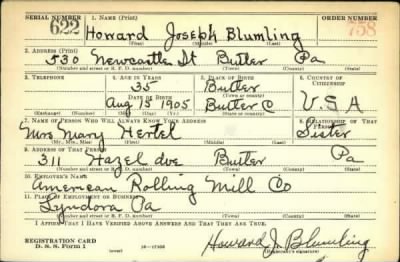 SERIAL NUMBER 1. NAME (Print) ORDER NUMBER
622 Howard Joseph Blumling 758
(First) (Middle) (Last)
2. ADDRESS (Print)
530 Newcastle St Butler Pa
(Number and street or R. F. D. number) (Town) (County) (State)
3. TELEPHONE 4. AGE IN YEARS 5. PLACE OF BIRTH 6. COUNTRY OF CITIZENSHIP
35 Butler
DATE OF BIRTH (Town or county)
Aug 15 1905 Butler C U.S.A
(Exchange) (Number) (Mo.) (Day) (Yr.) (State or country)
7. NAME OF PERSON WHO WILL ALWAYS KNOW YOUR ADDRESS 8. RELATIONSHIP OF THAT PERSON
Mrs Mary Hertel Sister
(Mr., Mrs., Miss) (First) (Middle) (Last)
9. ADDRESS OF THAT PERSON
311 Hazel ave Butler Pa
(Number and street or R. F. D. number) (Town) (County) (State)
10. EMPLOYER'S NAME
American Rolling Mill Co
11. PLACE OF EMPLOYMENT OR BUSINESS
Lyndora Pa
(Number and street or R. F. D. number) (Town) (County) (State)
I AFFIRM THAT I HAVE VERIFIED ABOVE ANSWERS AND THAT THEY ARE TRUE.
REGISTRATION CARD
D. S. S. Form 1 (over) Howard J. Blumling
(Registrant's signature)